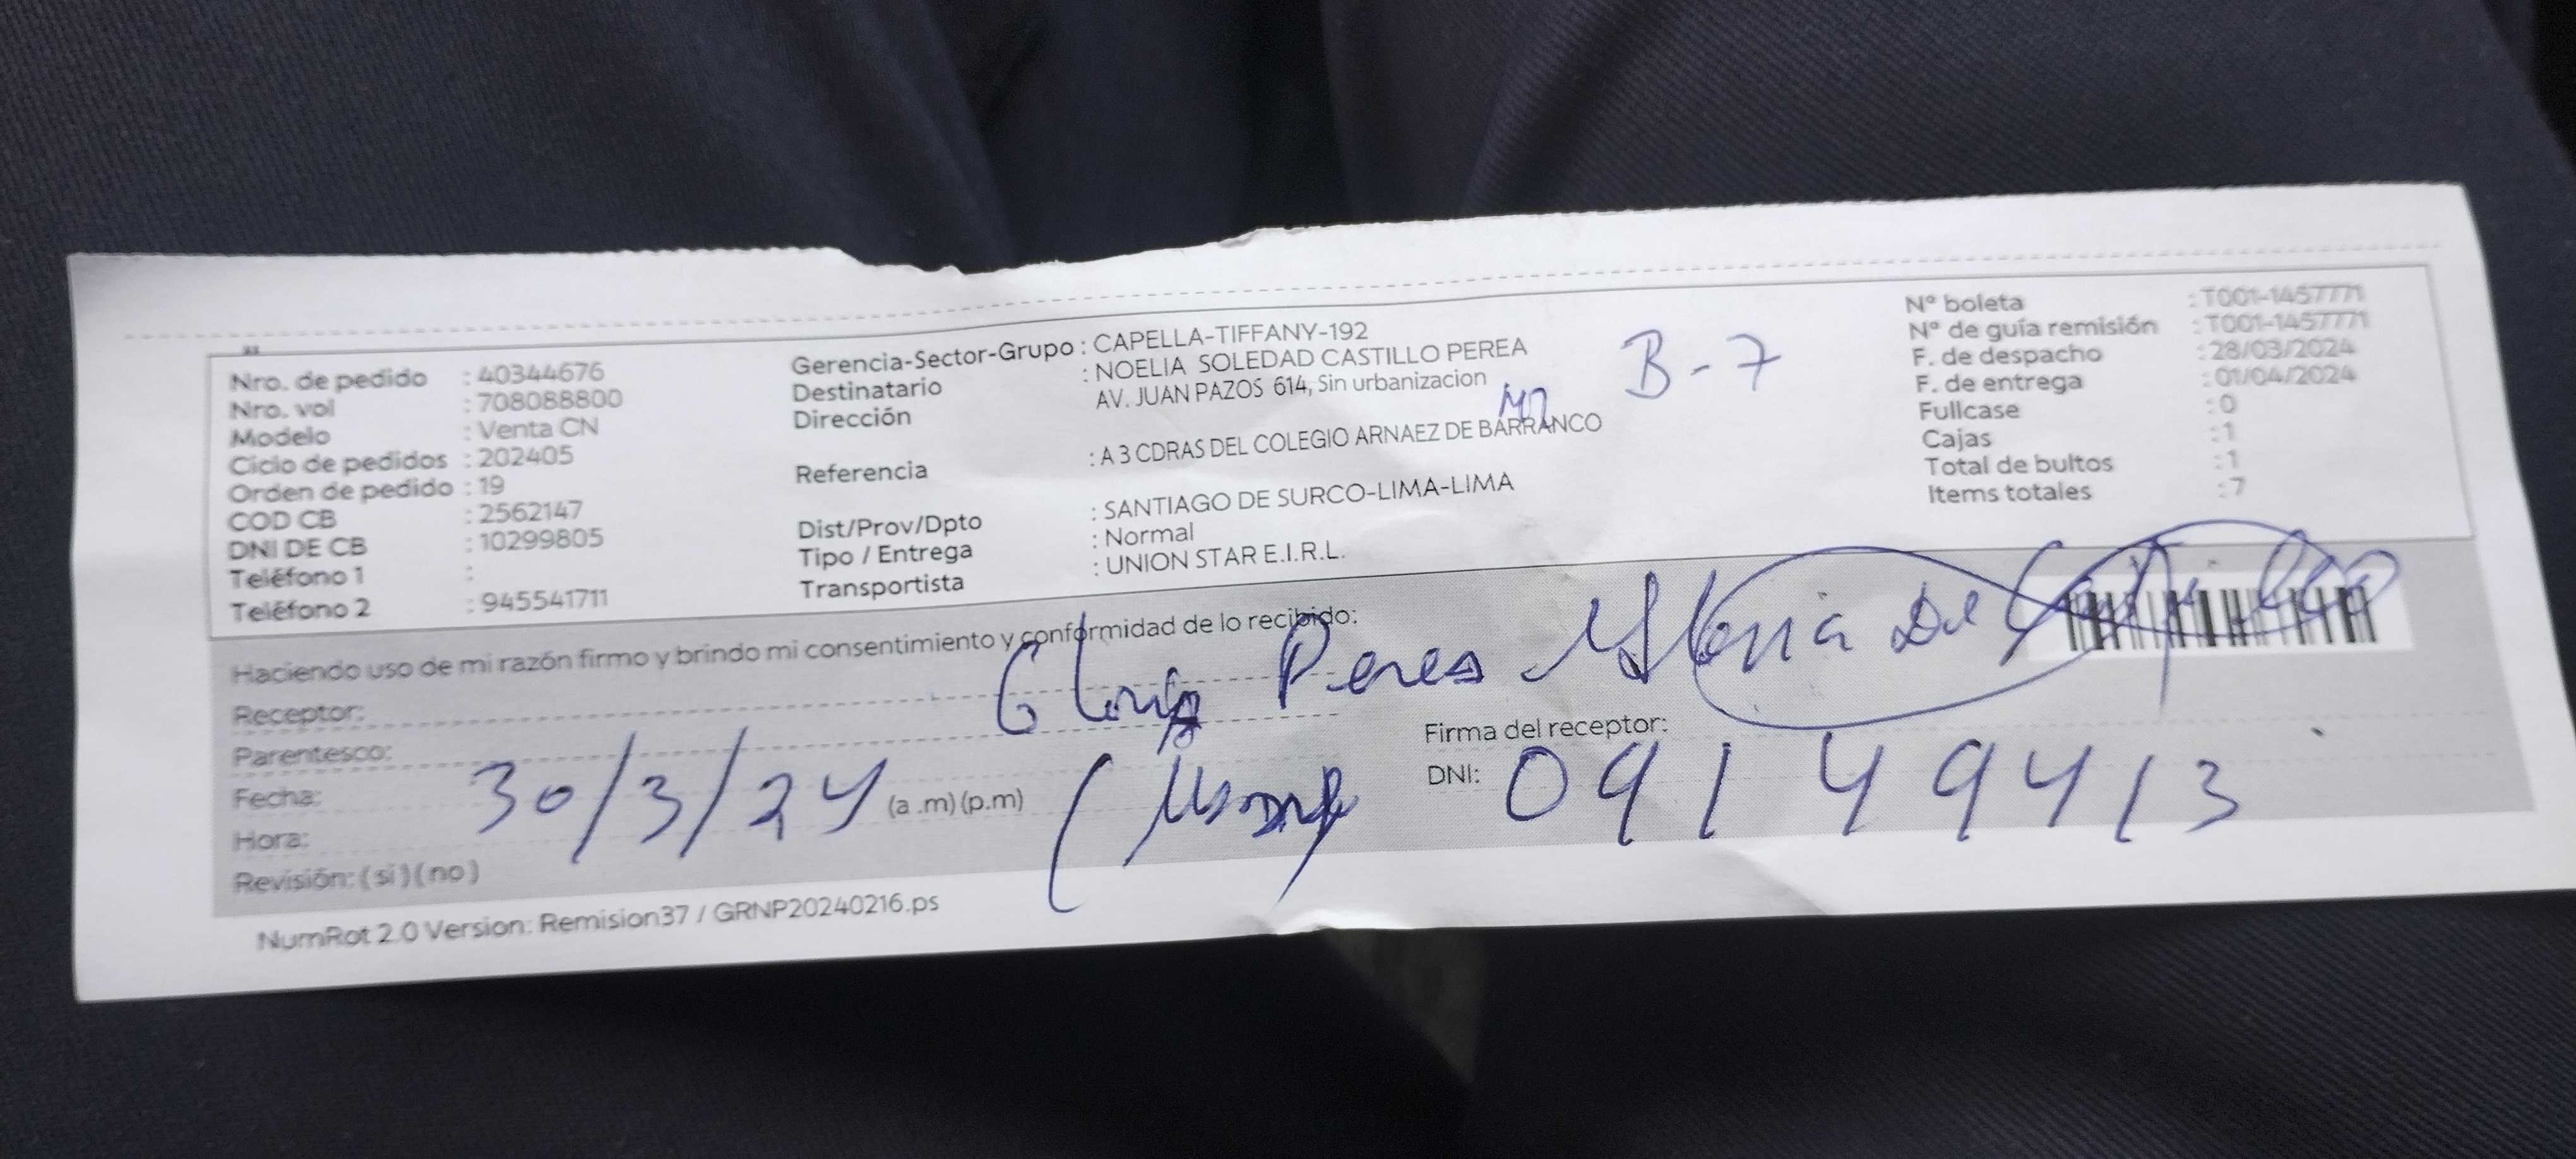 Nro. de pedido : 40344676
Nro. vol : 708088800
Modelo : Venta CN
Ciclo de pedidos : 202405
Orden de pedido : 19
COD CB : 2562147
DNI DE CB : 10299805
Teléfono 1 :
Teléfono 2 : 945541711
Gerencia-Sector-Grupo : CAPELLA-TIFFANY-192
Destinatario : NOELIA SOLEDAD CASTILLO PEREA
Dirección AV. JUAN PAZOS 614, Sin urbanizacion
Mz B-7
Referencia : A 3 CDRAS DEL COLEGIO ARNAEZ DE BARRANCO
Dist/Prov/Dpto : SANTIAGO DE SURCO-LIMA-LIMA
Tipo / Entrega : Normal
Transportista : UNION STAR E.I.R.L.
Nº boleta : T001-1457771
Nº de guía remisión : T001-1457771
F. de despacho : 28/03/2024
F. de entrega : 01/04/2024
Fullcase : 0
Cajas : 1
Total de bultos : 1
Items totales : 7
Haciendo uso de mi razón firmo y brindo mi consentimiento y conformidad de lo recibido:
Receptor: Gloria Perea
Parentesco:
Fecha: 30/3/24
Hora: (a .m) (p.m)
Revisión: ( sí ) ( no )
Firma del receptor: Gloria De
DNI: 09149413
NumRot 2.0 Version: Remision37 / GRNP20240216.ps